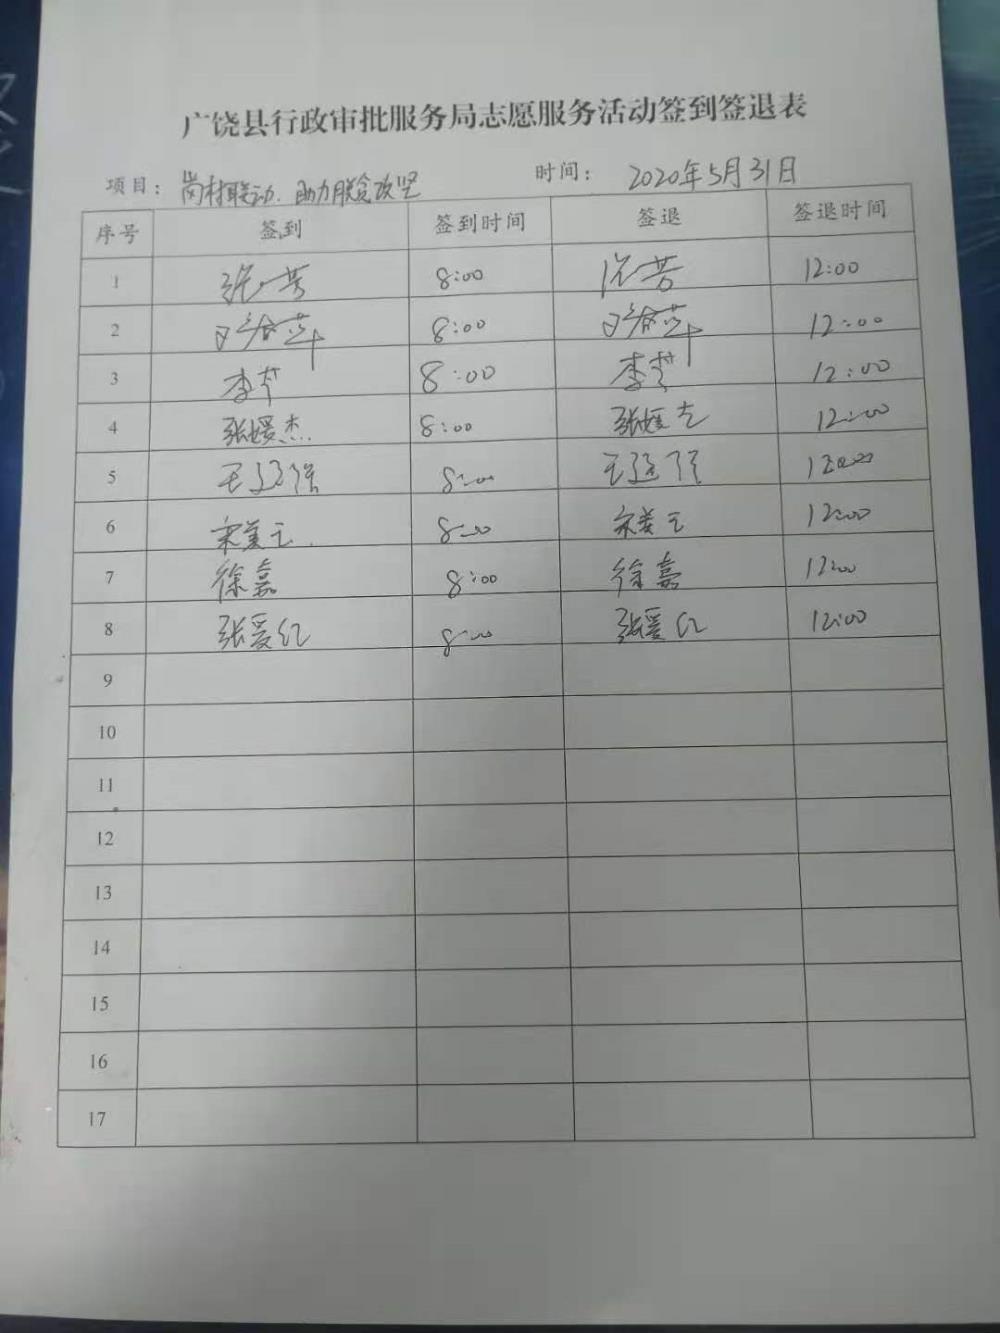 广饶县行政审批服务局志愿服务活动签到签退表
项目： 岗村联动.助力脱贫攻坚 时间： 2020年5月31日
序号 签到 签到时间 签退 签退时间
1 张芳 8:00 张芳 12:00
2 8:00 12:00
3 李芹 8:00 李芹 12:00
4 张媛杰 8:00 张媛杰 12:00
5 王 8:00 王 12:00
6 宋美玉 8:00 宋美玉 12:00
7 徐嘉 8:00 徐嘉 12:00
8 张爱红 8:00 张爱红 12:00
9
10
11
12
13
14
15
16
17